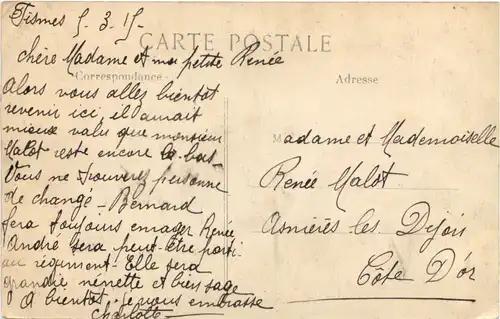 Fismes 5-3-15-
CARTE POSTALE
chère Madame et ma petite Renée
Correspondance
Adresse
Alors vous allez bientôt
revenir ici, il aurait
mieux valu que monsieur
Malot reste encore là-bas-
Vous ne trouverez personne
de changé - Bernard
sera toujours enrager Renée
André sera peut-être parti
au régiment - Elle sera
grandie nénette et bien sage
A bientôt je vous embrasse
Charlotte
Madame et Mademoiselle
Renée Malot
Asnières-les-Dijon
Côte D'or